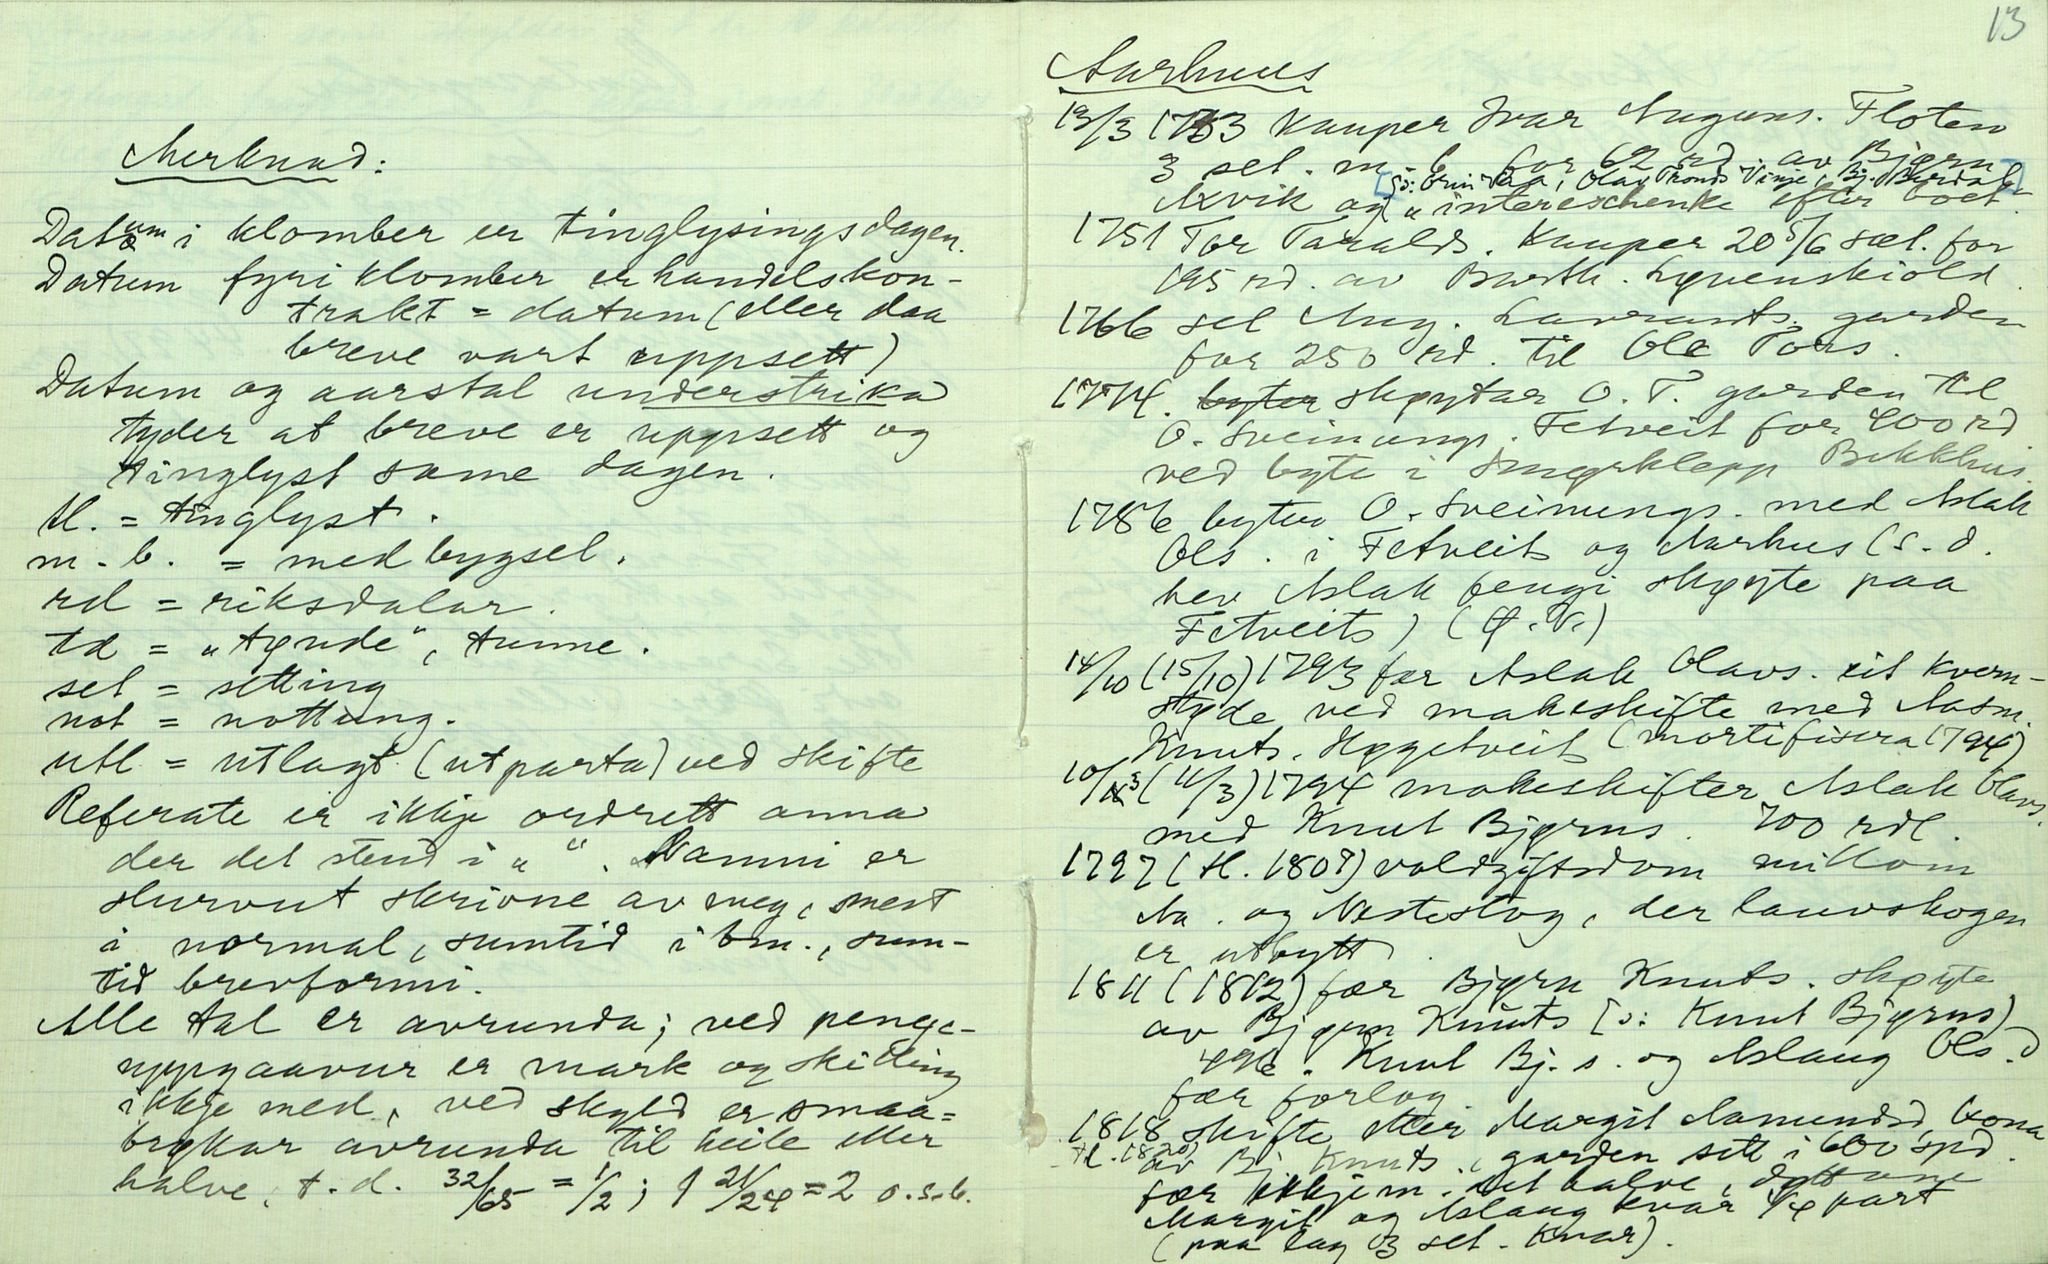 Merknad:
Datum i klomber er tinglysingsdagen.
Datum fyri klomber er handelskon-
trakt = datum (eller daa
breve vart uppsett)
Datum og aarstal understrika
tyder at breve er uppsett og
tinglyst same dagen.
tl. = tinglyst.
m. b. = med bygsel.
rd = riksdalar.
td = „tønde", tunne.
set = setting
not = nottung.
utl = utlagt (utparta) ved skifte
Referate er ikkje ordrett anna
der det stend i „ ". Namni er
slurvut skrivne av meg, mest
i normal, sumtid i bm., sum-
tid brevformi.
Alle tal er avrunda; ved penge-
uppgaavur er mark og skilling
ikkje med, ved skyld er smaa-
brøkar avrunda til heile eller
halve, t. d. 32/65 = 1/2; 1 21/24 = 2 o.s.b.
13
Aarhuus
13/3 1733 kauper Ivar Aaguns. Floten
3 set. m. b. for 62 rd av Bjørn
[ɔ: Grivi Vaa, Olav Tronds Vinje, Bj. Burdal]
Axvik og „intereschenke efter boet"
1751 Tor Taralds. kauper 20 5/6 set. for
195 rd. av Barth. Løvenskiold.
1766 sel Aug. Lavrants. garden
for 250 rd. til Ole Tors.
1774. byter skøytar O. T. garden til
O. Sveinungs. Fetveit for 400 rd
ved byte i Smørklepp Bekkhus.
1786 byter O. Sveinungs. med Aslak
Ols. i Fetveit og Aarhus (s. d.
hev Aslak fengi skøyte paa
Fetveit) (Ø. V.)
14/10 (15/10) 1793 fær Aslak Olavs. eit kvern-
støde ved makeskifte med Aasm.
Knuts. Høgetveit (mortifisera 1794)
10/3 (11/3) 1794 makeskifter Aslak Olavs.
med Knut Bjørns. 700 rdl.
1797 (tl. 1807) voldgiftsdom millom
Aa. og Nestestog, der lauvskogen
er utbytt.
1811 (1812) fær Bjørn Knuts. skøyte
av Bjørn Knuts [ɔ: Knut Bjørns)
496. Knut Bj. s. og Aslaug Ols. d
fær forlog
1818 skifte etter Margit Aamundsd, kona
tl. 1820) av Bj. Knuts., garden sett i 600 spd.
fær ikkjem. det halve, døttane
Margit og Aslaug kvar 1/4 part
(paa lag 3 set. kvar).